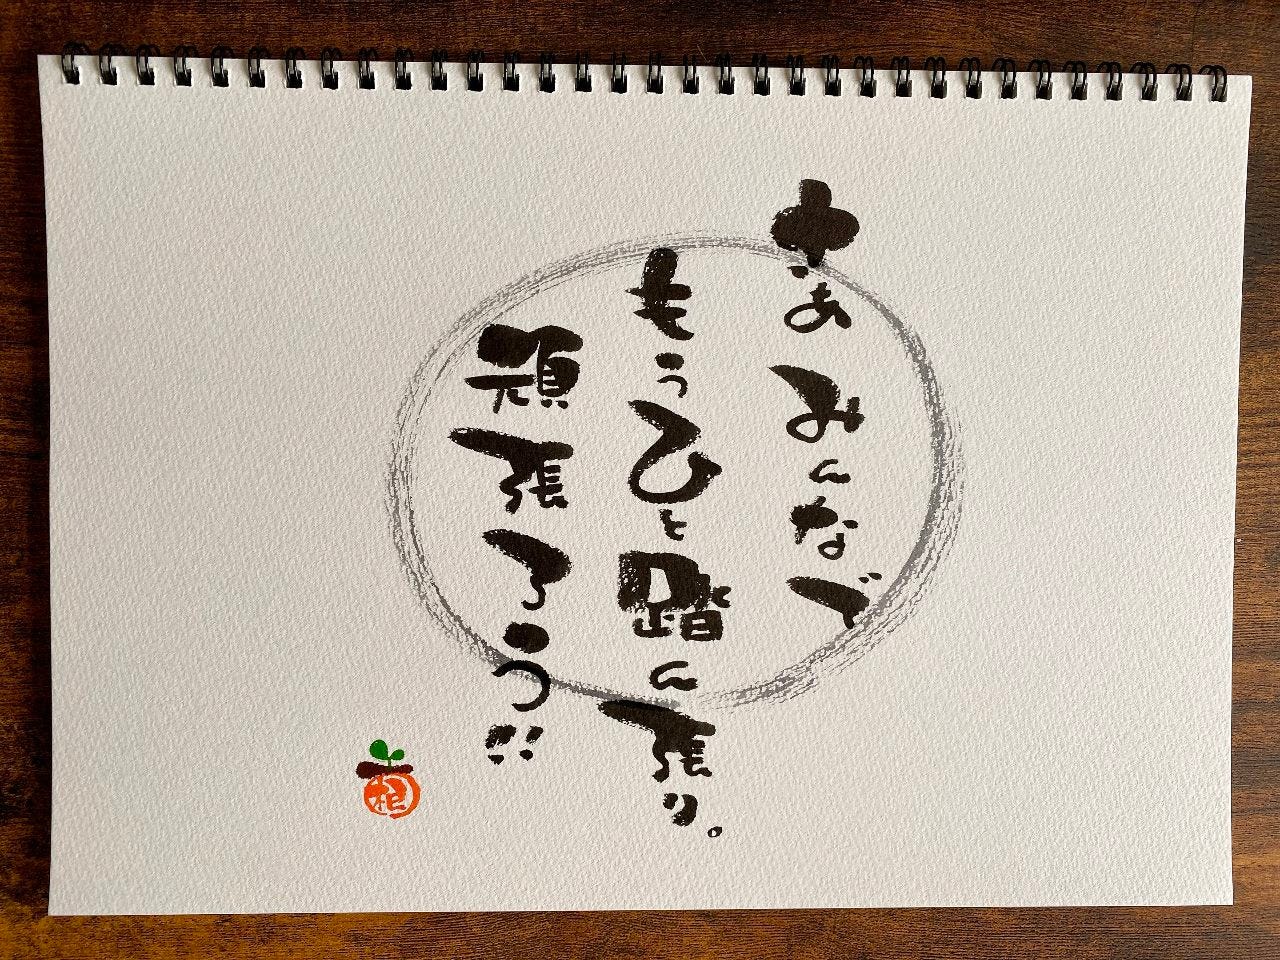 さぁみんなで
もうひと踏ん張り。
頑張ろう!!
根